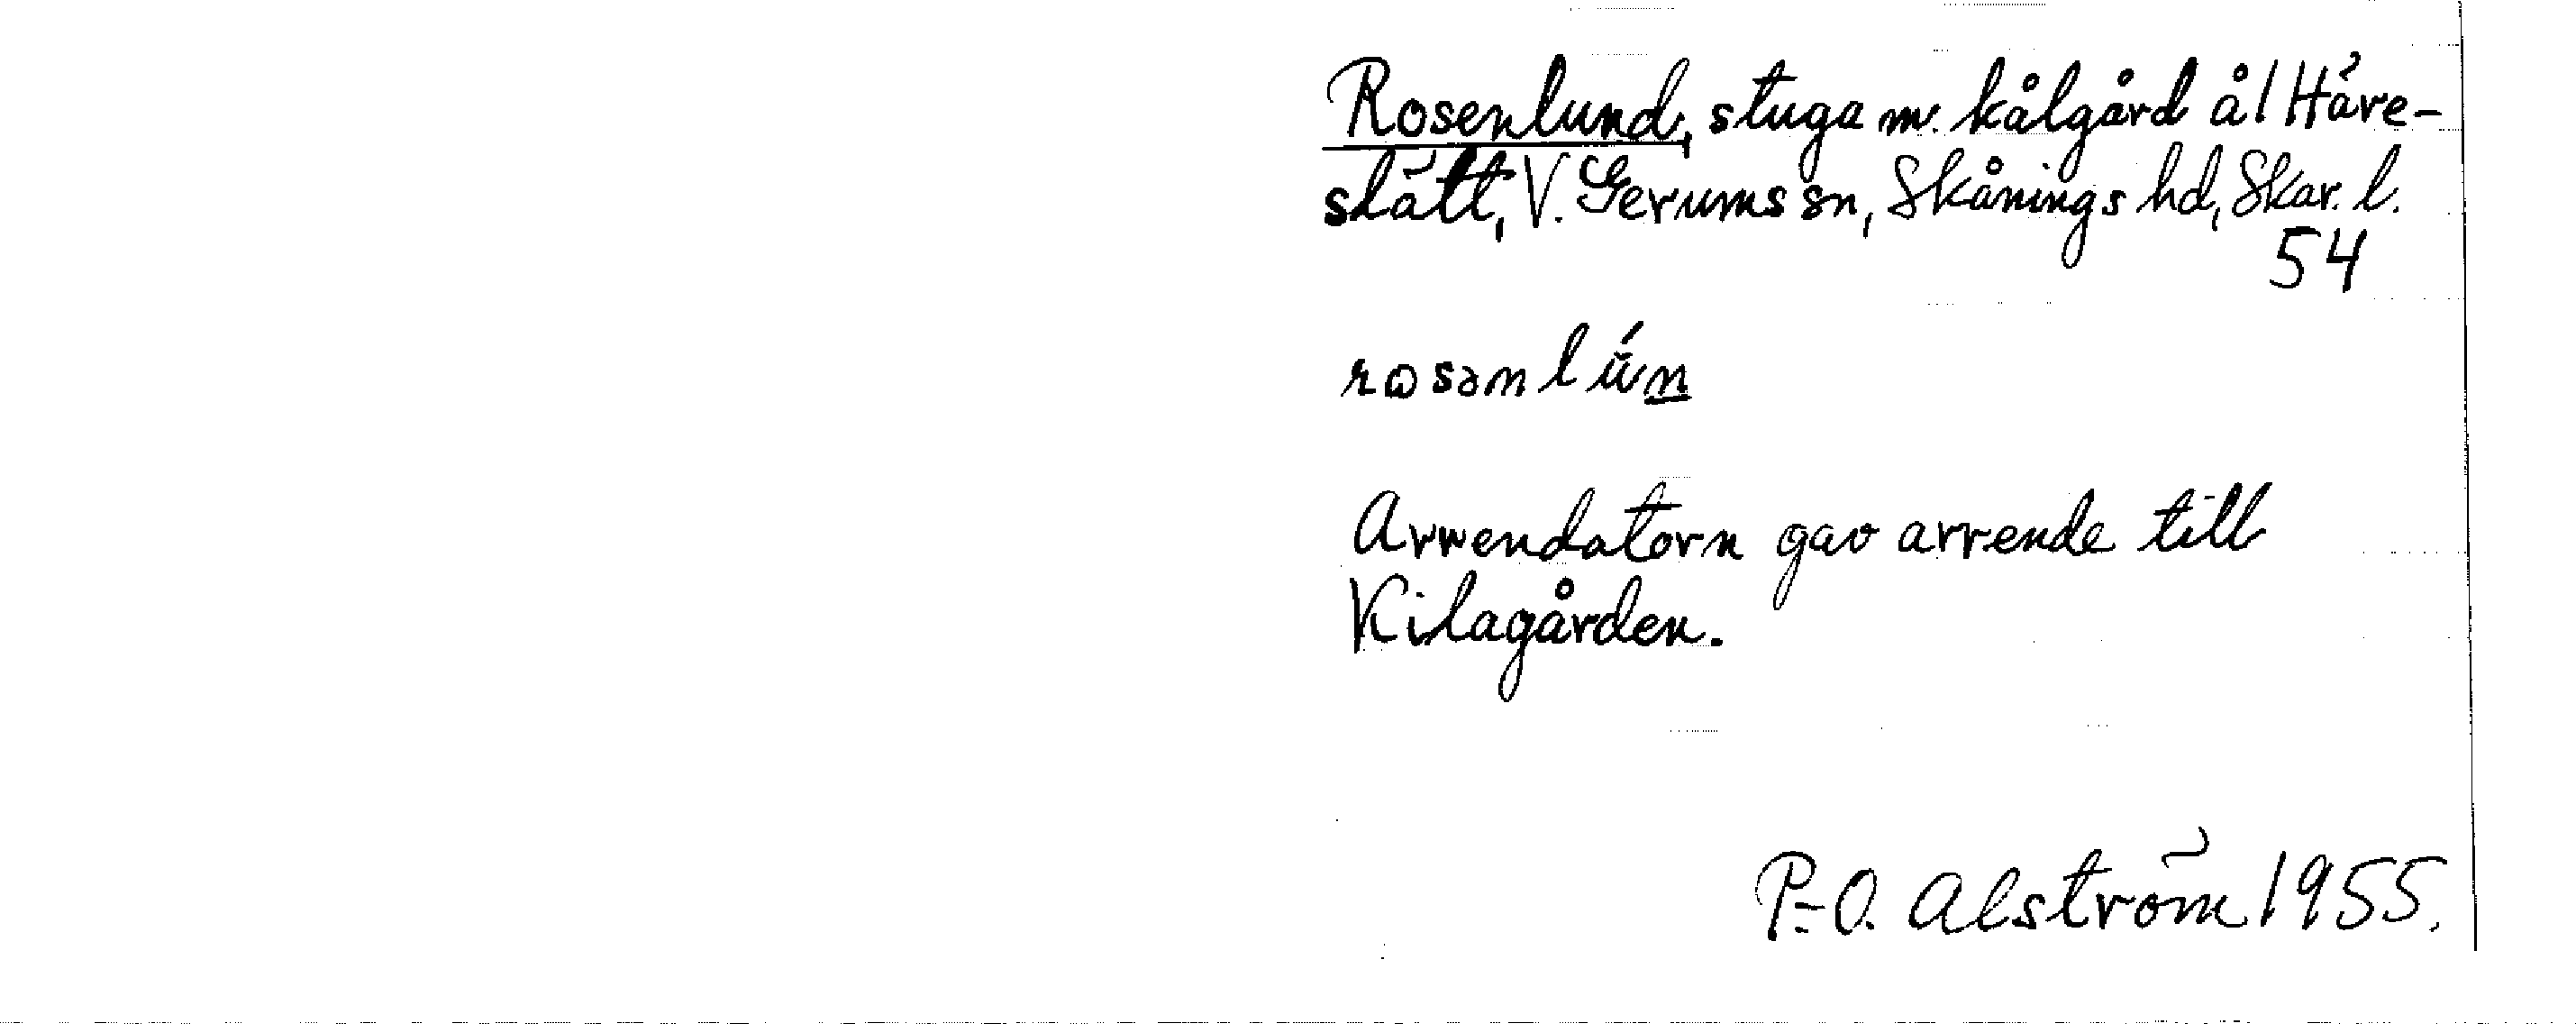 Rosenlund, stuga m. kålgård å l Häre-
slätt, V. Gerums sn, Skånings hd, Skar. l.
54
rosənlún
Arrendatorn gav arrende till
Kilagården.
P.-O. Alström 1955.